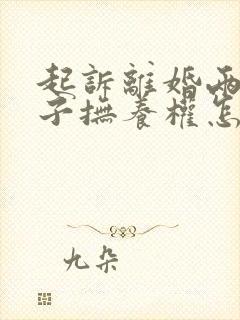 起訴離婚兩
子撫養權怎
九朵